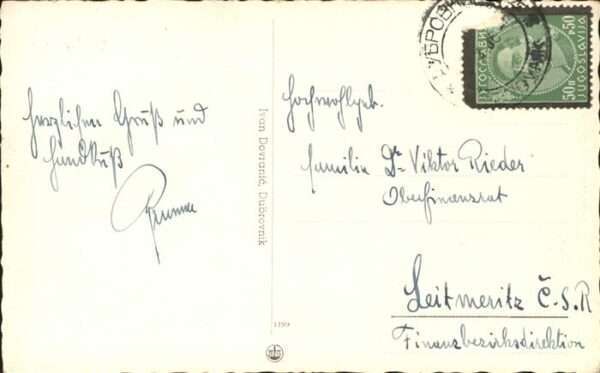 herzlichen Gruß und
Handkuß
Ivan Dovranić, Dubrovnik
Hochwohlgeb.
Familie Dr Viktor Rieder
Oberfinanzrat
Leitmeritz Č.S.R
Finanzbezirksdirektion
ЈУГОСЛАВИЈА
JUGOSLAVIJA
50
50